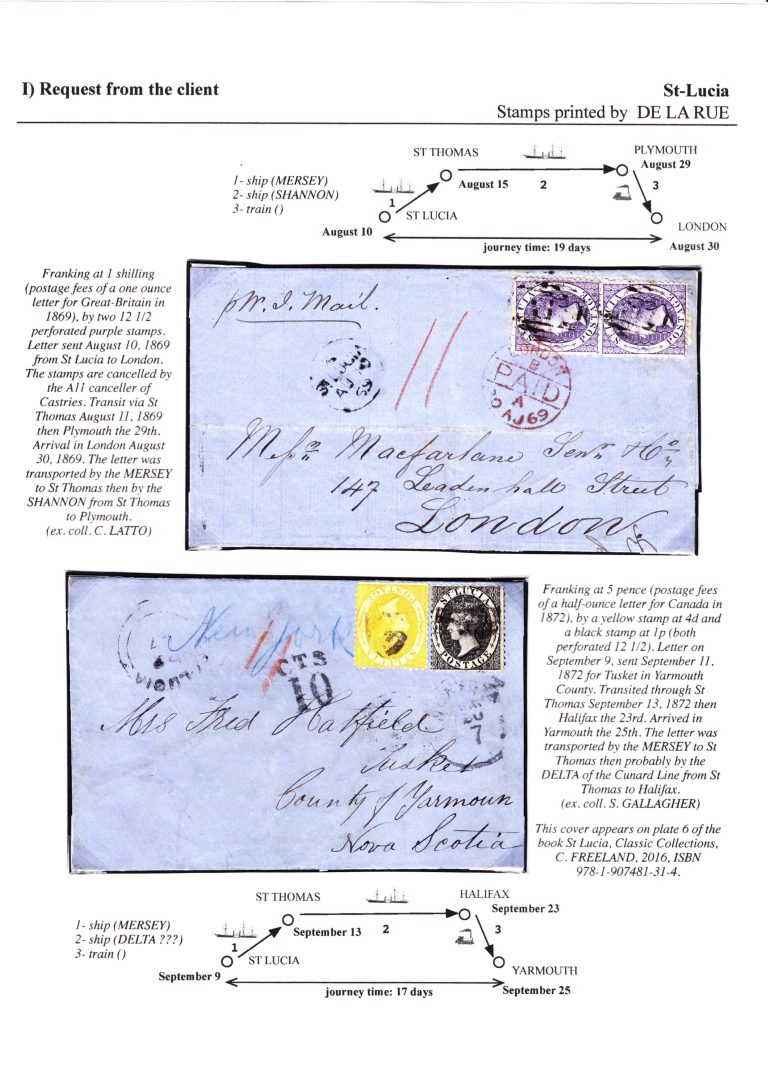 I) Request from the client
St-Lucia
Stamps printed by DE LA RUE
1- ship (MERSEY)
2- ship (SHANNON)
3- train ()
ST THOMAS
PLYMOUTH
August 29
August 15
1
2
3
ST LUCIA
LONDON
August 10
journey time: 19 days
August 30
Franking at 1 shilling
(postage fees of a one ounce
letter for Great-Britain in
1869), by two 12 1/2
perforated purple stamps.
Letter sent August 10, 1869
from St Lucia to London.
The stamps are cancelled by
the A11 canceller of
Castries. Transit via St
Thomas August 11, 1869
then Plymouth the 29th.
Arrival in London August
30, 1869. The letter was
transported by the MERSEY
to St Thomas then by the
SHANNON from St Thomas
to Plymouth.
(ex. coll. C. LATTO)
Mail.
PAID
A
AU 69
Macfarlane Senr & Co
147 Leadenhall Street
London
New York
CTS
10
ST LUCIA
POSTAGE
Mrs Fred Hatfield
Tusket
County of Yarmoun
Nova Scotia
Franking at 5 pence (postage fees
of a half-ounce letter for Canada in
1872), by a yellow stamp at 4d and
a black stamp at 1p (both
perforated 12 1/2). Letter on
September 9, sent September 11,
1872 for Tusket in Yarmouth
County. Transited through St
Thomas September 13, 1872 then
Halifax the 23rd. Arrived in
Yarmouth the 25th. The letter was
transported by the MERSEY to St
Thomas then probably by the
DELTA of the Cunard Line from St
Thomas to Halifax.
(ex. coll. S. GALLAGHER)
This cover appears on plate 6 of the
book St Lucia, Classic Collections,
C. FREELAND, 2016, ISBN
978-1-907481-31-4.
1- ship (MERSEY)
2- ship (DELTA ???)
3- train ()
ST THOMAS
HALIFAX
September 23
September 13
1
2
3
ST LUCIA
YARMOUTH
September 9
journey time: 17 days
September 25